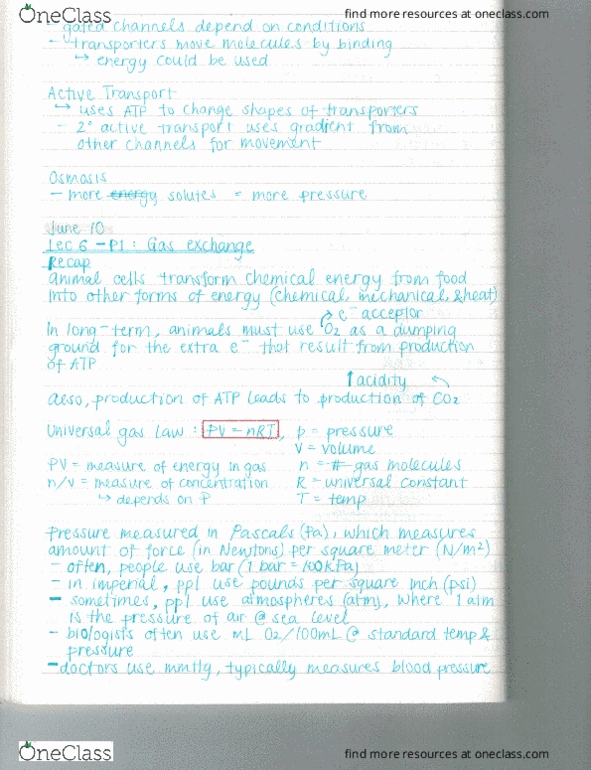 OneClass
find more resources at oneclass.com
- gated channels depend on conditions
- transporters move molecules by binding
↳ energy could be used
Active Transport
↳ uses ATP to change shapes of transporters
- 2° active transport uses gradient from
other channels for movement
Osmosis
- more energy solutes = more pressure
June 10
Lec 6 - P1: Gas exchange
Recap
animal cells transform chemical energy from food
into other forms of energy (chemical, mechanical, & heat)
e⁻ acceptor
In long-term, animals must use O₂ as a dumping
ground for the extra e⁻ that result from production
of ATP
↑ acidity
also, production of ATP leads to production of CO₂
Universal gas law: PV = nRT, p = pressure
V = volume
PV = measure of energy in gas n = # gas molecules
n/v = measure of concentration R = universal constant
↳ depends on P T = temp
Pressure measured in Pascals (Pa), which measures
amount of force (in Newtons) per square meter (N/m²)
- often, people use bar (1 bar = 100kPa)
- in imperial, ppl use pounds per square inch (psi)
- sometimes, ppl use atmospheres (atm), where 1 atm
is the pressure of air @ sea level
- biologists often use mL O₂/100mL @ standard temp &
pressure
- doctors use mmHg, typically measures blood pressure
OneClass
find more resources at oneclass.com